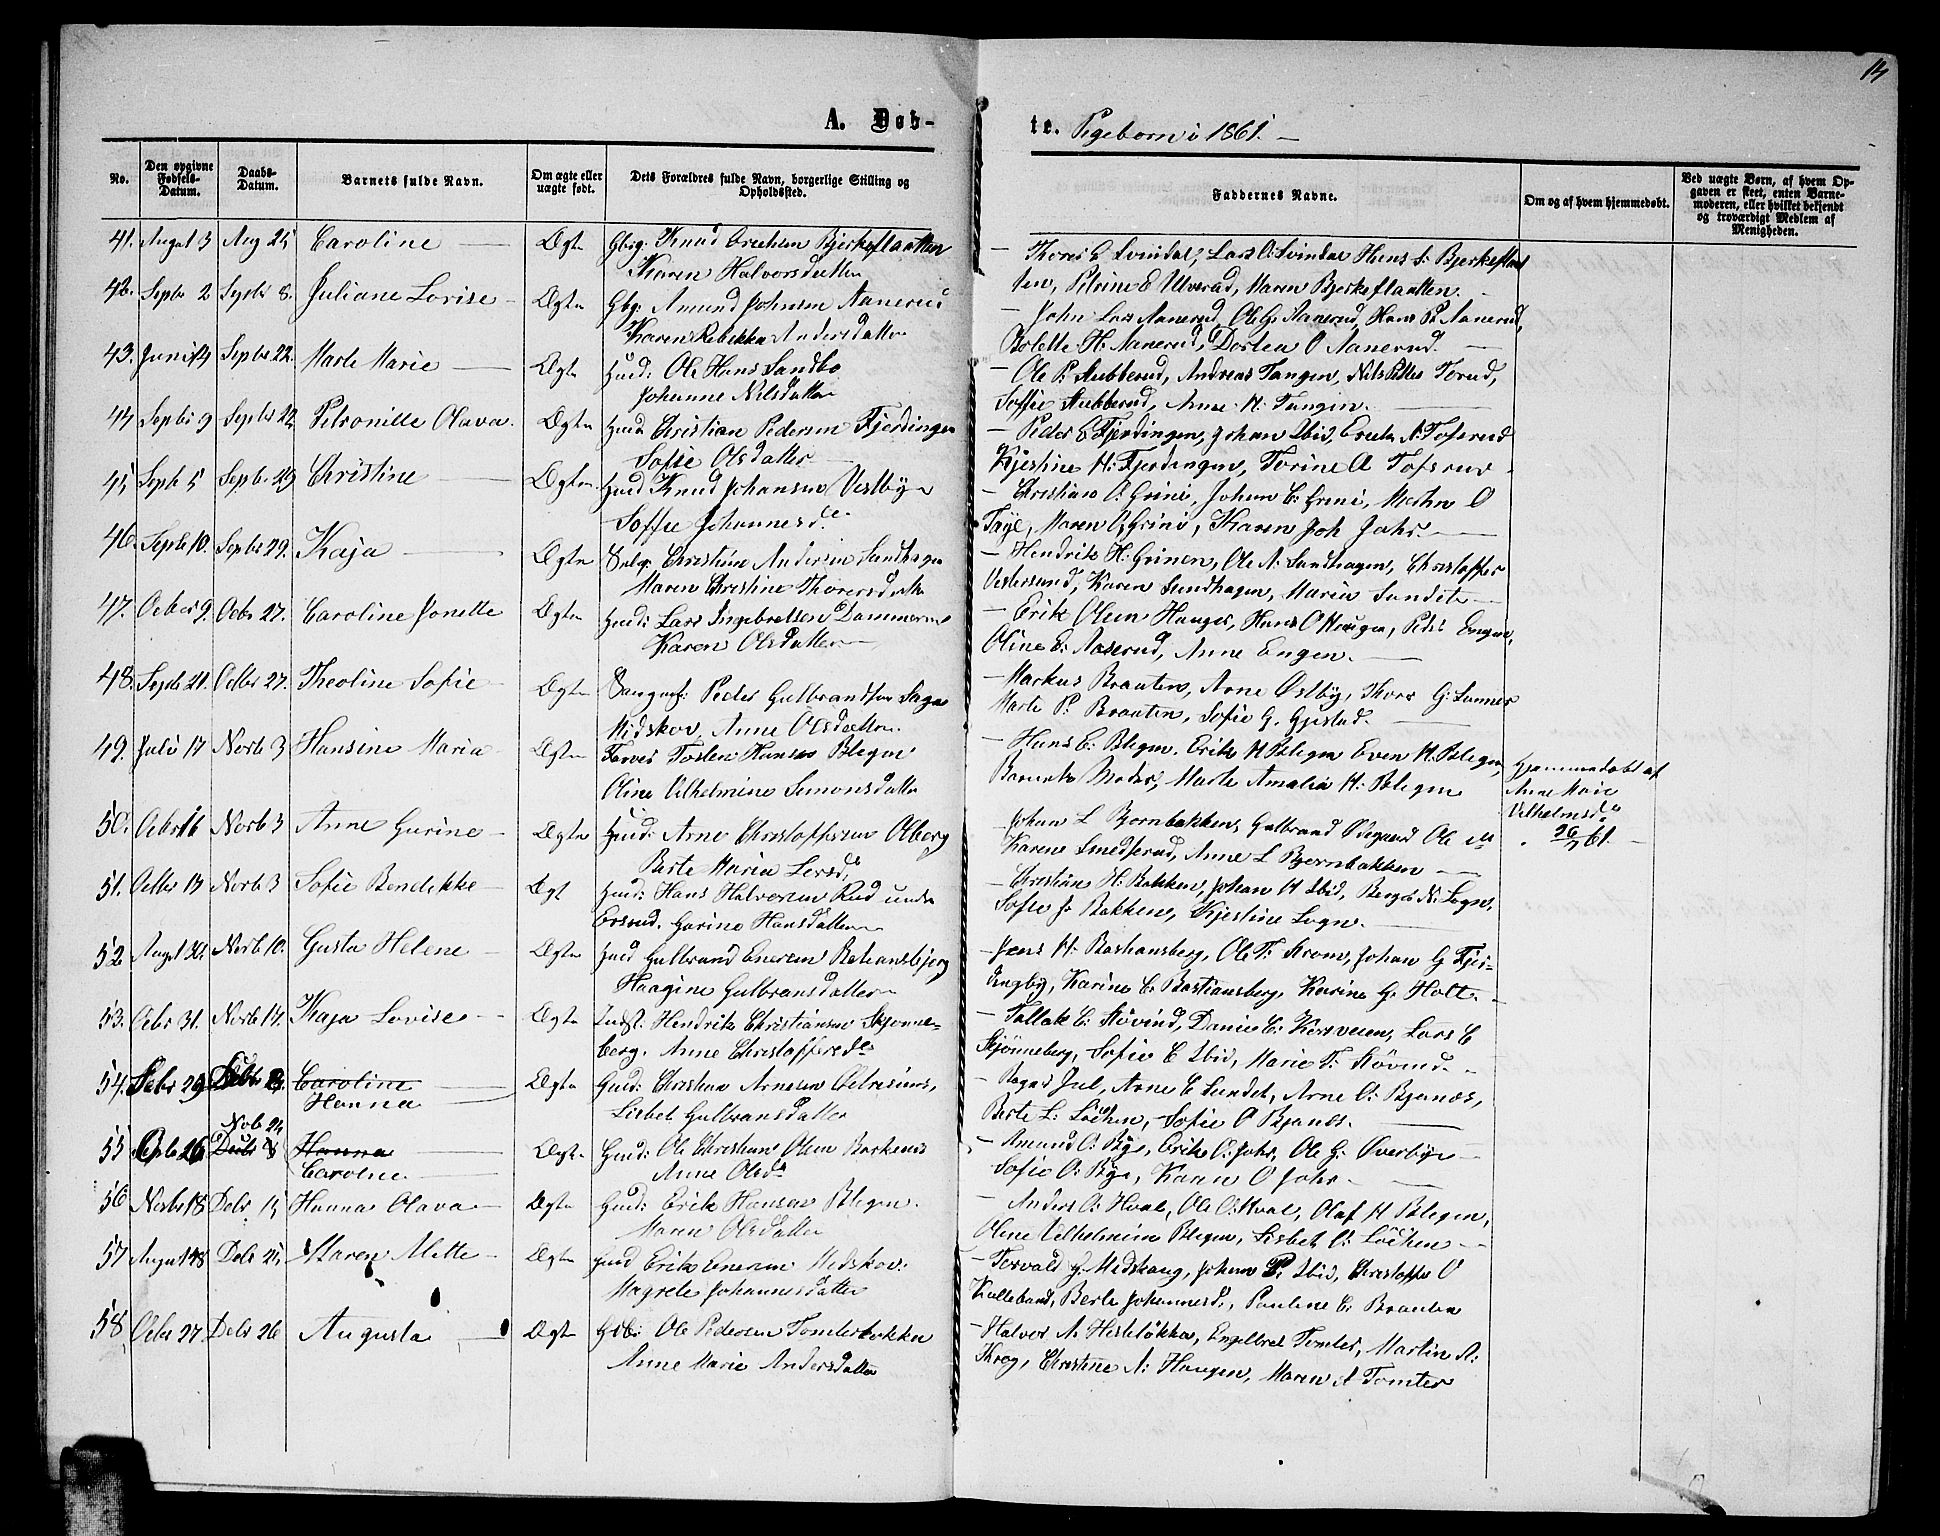 14
A. Døb-
te. Pigebørn i 1861.
No.
Den opgivne Fødsels-Datum.
Daabs-Datum.
Barnets fulde Navn.
Om ægte eller uægte født.
Dets Forældres fulde Navn, borgerlige Stilling og Opholdssted.
Faddernes Navne.
Om og af hvem hjemmedøbt.
Ved uægte Børn, af hvem Opgaven er skeet, enten Barnemoderen, eller hvilket bekjendt og troværdigt Medlem af Menigheden.
41. August 3 Aug 25 Caroline Ægte Gbrg: Knud Bjerkeflaatten
Karen Halvorsdatter
Thores E Svindal, Lars O: Svindal Hans S: Bjerkeflaat
ten, Petrine E Ulverud, Maren Bjerkeflaatten.
42. Septbr 2 Septbr 8. Juliane Lovise Ægte Gbg: Amund Johnsen Aanerud
Karen Rebekka Andersdatter
John Lars Aanerud, Ole G. Aanerud, Hans P. Aanerud,
Bolette H. Aanerud, Dortea O Aanerud.
43. Juni 14 Septbr 22. Marte Marie Ægte Husd: Ole Hans Sandbo
Johanne Nilsdatter
Ole P. Stubberud, Andreas Tangen, Nils Torud,
Soffie Stubberud, Anne H. Tangen.
44 Septbr 9 Septbr 22 Petronille Olava. Ægte Husd Christian Pedersen Fjerdingen
Sofie Olsdatter
Peder E Fjerdingen, Johan Ibid, Erik A. Tofsrud
Kjestine H: Fjerdingen, Torine A Tofsrud
45 Septb 5 Septbr 29 Christine Ægte Husd Knud Johansen Vestbye
Soffie Johannesd.
Christian O: Grini, Johan C: Grini, Marthe O
Maren O, Grini, Karen Joh Jahr.
46. Septb 10. Septbr 29. Kaja Ægte Christian Andersen Sandhagen
Maren Christine Thoresdatter
Hendrik H: Grinen, Ole A. Sandhagen, Christoffer
Vestersund, Karen Sandhagen, Maria Sundet
47. Octbr 9. Octbr 27. Caroline Jonette Ægte Husd: Lars Ingebretsen Dammen
Karen Olsdatter
Erik Olsen Hauger, Hans O Haugen, Peder Engen,
Oline E: Aaserud, Anne Engen.
48. Septb 21. Octbr 27. Theoline Sofie Ægte Peder Gulbrandsen
Midskov, Anne Olsdatter
Markus Braaten, Arne Østby, Thor G: Sønner
Marte P. Braaten, Sofie G. Gjestad.
49. Juli 17 Novb 3 Hansine Maria Ægte Farver Hansen Blegen
Oline Vilhelmine Simonsdatter
Hans E: Blegen, Erik H Blegen Even H. Blegen,
Barnets Moder, Marte Amalia H. Blegen
Hjemmedøbt af
Anne Marie
Vilhelmsd.
26/7 61.
50. Octbr 16 Novb 3 Anne Gurine Ægte Husd: Arne Christoffersen Olberg
Berte Maria Larsd.
Johan L Bjørnbakken, Gulbrand Ødegaard Ole
Karene Smedserud, Anne L Bjørnbakken
51. Octbr 17 Novb 3 Sofie Bendikke Ægt Husd: Hans Halvorsen Rud under
Ersrud, Gurine Hansdatter
Christian H. Bakken, Johan H Ibid, Berger N: Sogn,
Sofie J: Bakken, Kjestine Sogn.
52 August 30. Novb 10. Gusta Helene Ægte Husd Gulbrand Enersen Bastiansbjerg
Haagine Gulbransdatter
Jens H. Bastiansberg, Ole T. Krom, Johan G Fjer-
dingby, Karine E. Bastiansberg, Karine G. Holt.
53. Octbr 31. Novb 17. Kaja Lovise Ægte Indst: Hendrik Christiansen Skjønne-
berg. Anne Christoffersd.
Tollak E: Støvind, Lars E
Skjønneberg, Sofie E Ibid, Marie T. Støvind.
54. Octbr 29 Caroline
Hanna Ægte Husd: Christian Arnesen
Lisbet Gulbransdatter
Ragnd Jul, Arne E Sundet, Arne O: Bjanæs,
Berte L: Løchen, Sofie O Bjanes.
Nob 24
55 Septbr 26 Decbr 8 Hanna
Caroline. Ægte Husd: Ole Christian Olsen
Anne Olsd.
Amund O: Bye, Erik O: Jahr, Ole G: Øverbye
Sofie O: Bye, Karen O Jahr.
56 Novbr 18 Decbr 15 Hanna Olava Ægte Husd: Erik Hansen Blegen.
Maren Olsdatter
Anders O: Hval, Ole O: Hval, Olaf H Blegen,
Olene Vilhelmine Blegen, Lisbet O: Løchen
57 August 18 Decbr 25 Maren Mette Ægte Husd Erik Enersen Midskov.
Magrete Johannesdatter
Torvald J. Midskaug, Johan P: Ibid, Christoffer O
Kullebund, Berte Johannesd., Pauline E. Braaten
58 Octbr 27. Decbr 26 Augusta Ægte Ole Pedersen Tomterbakken
Anne Marie Andersdatter
Halvor A. Hesteløkken, Engelbret Tomter, Martin A:
Krog, Christine A: Haugen, Maren A Tomter